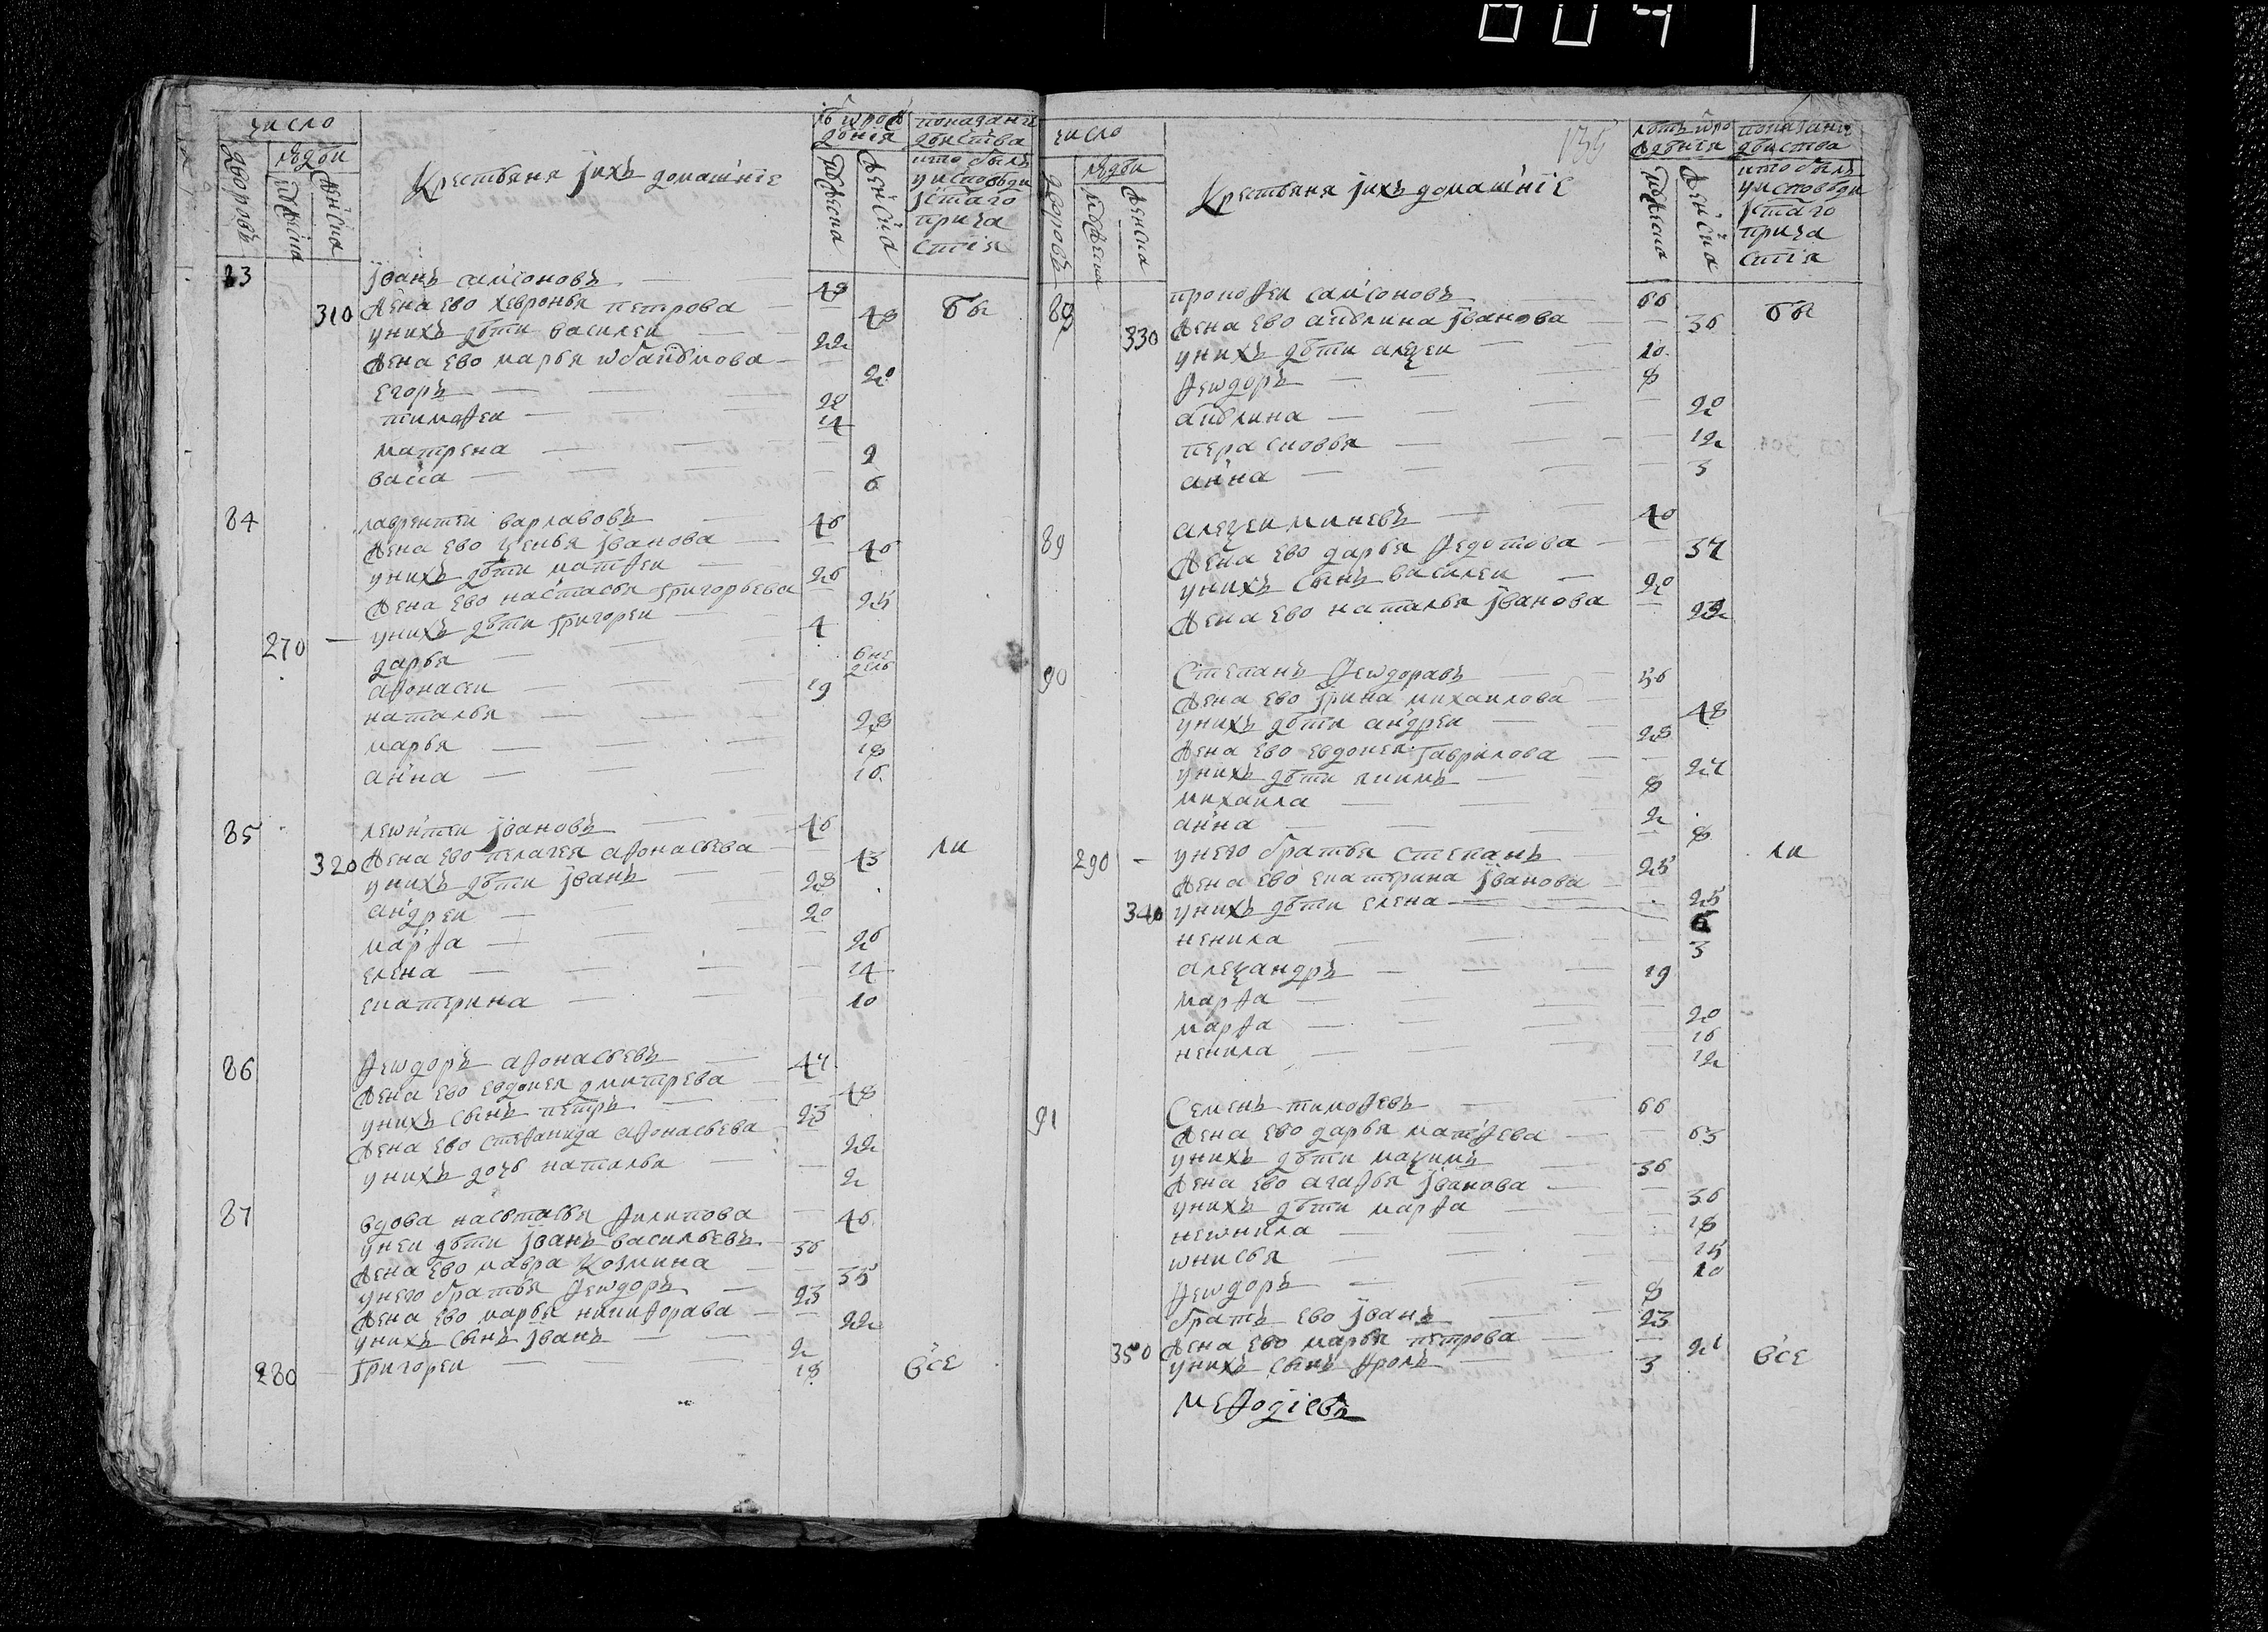 число
людеи
дворовъ
мужеска
женска
Крестьяне ихъ домашнїе
мужеска
женска
показанїе
действа
кто былъ
у исповеди
прича
стїя
83 Јванъ самсоновъ 49
310 жена ево хевронья петрова 48 бы
у нихъ дѣти василеи 22
жена ево марья 20
егоръ 20
тимофеи 14
матрена 9
васса 6
84 лаврентеи варлавовъ 46
жена ево ѯенья јванова 46
у нихъ дѣти матфеи 26
жена ево настасья григорьева 25
270 у нихъ дѣти григореи 4
дарья 6 не
дель
афонасеи 19
наталья 28
марья 18
анна 16
85 леѡнтеи јвановъ 46
320 жена ево пелагея афонасьева 43 ли
у нихъ дѣти јванъ 28
андреи 20
марфа 26
елена 14
екатерина 10
86 феѡдоръ афонасьевъ 47
жена ево евдокея дмитрева 48
у нихъ сынъ петръ 23
жена ево стефанида афонасьева 22
у нихъ дочь наталья 2
87 вдова настасья филипова 46
у неи дѣти јванъ васильевъ 36
жена ево мавра козмина 35
у него братья феѡдоръ 23
жена ево марья никифорава 22
у нихъ сынъ јванъ 2
280 григореи 18 все
135
число
людеи
дворовъ
мужеска
женска
Крестьяне ихъ домашнїе
мужеска
женска
показанїе
действа
кто былъ
у исповеди
прича
стїя
88 прокофеи самсоновъ 66 бы
330 жена ево акилина јванова 36
у нихъ дѣти алеѯеи 10
феѡдоръ 8
акилина 20
перасковья 12
анна 3
89 алеѯеи миневъ 40
жена ево дарья федотова 37
у нихъ сынъ василеи 20
жена ево наталья јванова 22
90 Степанъ феѡдоравъ 56
жена ево јрина михаилова 48
у нихъ дѣти андреи 28
жена ево евдокея гаврилова 27
у нихъ дѣти якимъ 8
михаила 2
анна 8
290 у него братья степанъ 25 ли
жена ево екатерина јванова 25
340 у нихъ дѣти елена 6
ненила 3
алеѯандръ 19
марфа 20
марфа 16
ненила 12
91 Семенъ тимофевъ 66
жена ево дарья матфева 63
у нихъ дѣти маѯимъ 36
жена ево агафья јванова 36
у нихъ дѣти марфа 18
неѡнила 15
ѡнисья 10
феѡдоръ 8
братъ ево јванъ 23
350 жена ево марья петрова 21
у нихъ сынъ фролъ 3 все
мефодіевъ